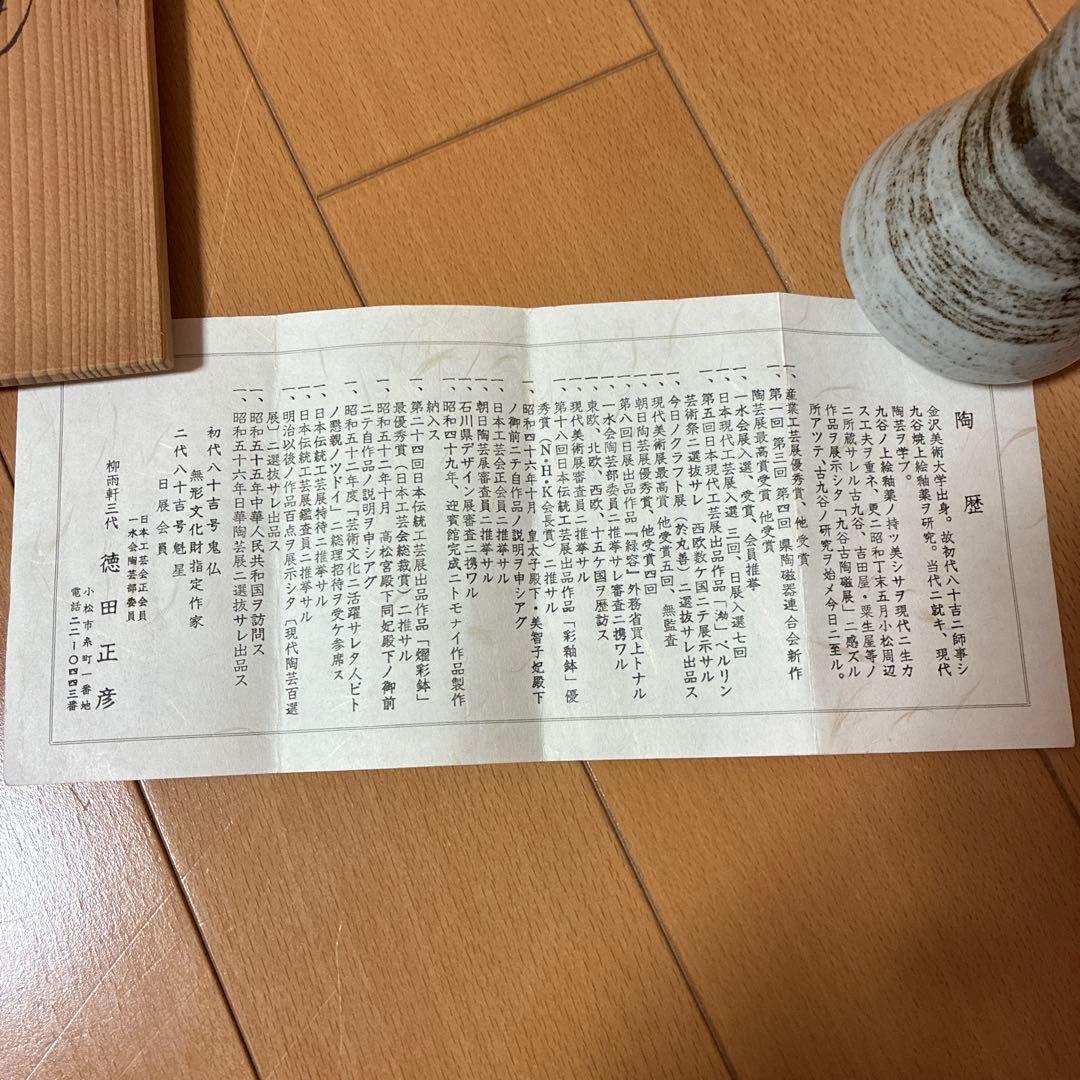 陶歴
金沢美術大学出身。故初代八十吉ニ師事シ
九谷焼上絵釉薬ヲ研究。当代ニ就キ、現代
陶芸ヲ学ブ。
九谷ノ上絵釉薬ノ持ツ美シサヲ現代ニ生カ
ス工夫ヲ重ネ、更ニ昭和丁末五月小松周辺
ニ所蔵サレル古九谷、吉田屋・粟生屋等ノ
作品ヲ展示シタ「九谷古陶磁展」ニ感ズル
所アツテ、古九谷ノ研究ヲ始メ今日ニ至ル。
一、産業工芸展優秀賞、他受賞
一、第一回 第三回 第四回 県陶磁器連合会新作
陶芸展最高賞受賞 他受賞
一、一水会展入選、受賞、会員推挙
一、日本現代工芸展入選 三回、日展入選七回
一、第五回日本現代工芸展出品作品「渤」ベルリン
芸術祭ニ選抜サレ 西欧数ケ国ニテ展示サル
一、今日ノクラフト展(於丸善)ニ選抜サレ出品ス
一、現代美術展最高賞 他受賞五回、無監査
一、朝日陶芸展優秀賞、他受賞四回
一、第八回日展出品作品『緑容』外務省買上トナル
一、一水会陶芸部委員ニ推挙サレ審査ニ携ワル
一、東欧、北欧、西欧、十五ケ国ヲ歴訪ス
一、現代美術展審査員ニ推挙サル
一、第十八回日本伝統工芸展出品作品「彩釉鉢」優
秀賞(N・H・K会長賞)ニ推サル
一、昭和四十六年十月 皇太子殿下・美智子妃殿下
ノ御前ニテ自作品ノ説明ヲ申シアグ
一、日本工芸会正会員ニ推挙サル
一、朝日陶芸展審査員ニ推挙サル
一、石川県デザイン展審査ニ携ワル
一、昭和四十九年、迎賓館完成ニトモナイ作品製作
納入ス
一、第二十四回日本伝統工芸展出品作品「燿彩鉢」
最優秀賞(日本工芸会総裁賞)ニ推サル
一、昭和五十二年十月 高松宮殿下同妃殿下ノ御前
ニテ自作品ノ説明ヲ申シアグ
一、昭和五十二年度「芸術文化ニ活躍サレタ人ビト
ノ懇親ノツドイ」ニ総理招待ヲ受ケ参席ス
一、日本伝統工芸展特待ニ推挙サル
一、日本伝統工芸展鑑査員ニ推挙サル
一、明治以後ノ作品百点ヲ展示シタ〔現代陶芸百選
展〕ニ選抜サレ出品ス
一、昭和五十五年中華人民共和国ヲ訪問ス
一、昭和五十六年日華陶芸展ニ選抜サレ出品ス
初代八十吉号鬼仏
無形文化財指定作家
二代八十吉号魁星
日展会員
日本工芸会正会員
一水会陶芸部委員
柳雨軒三代 徳田正彦
小松市糸町一番地
電話二二-〇四四三番